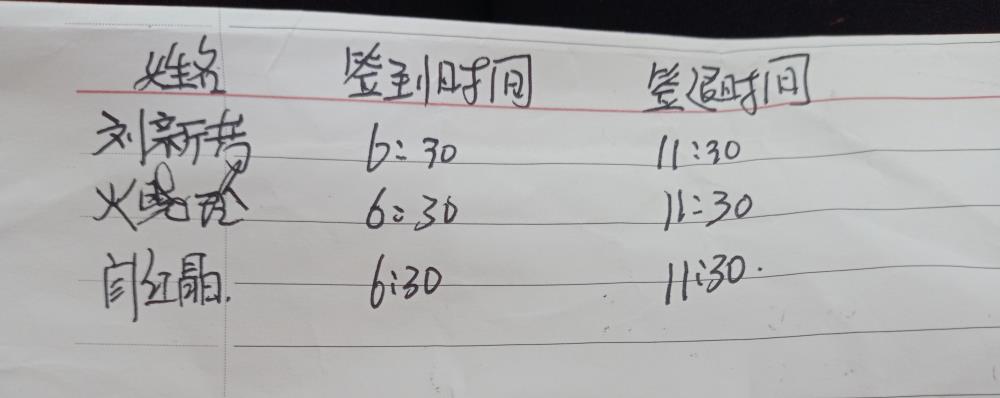 姓名 签到时间 签退时间
刘新 6:30 11:30
火 6:30 11:30
闫红晶. 6:30 11:30.